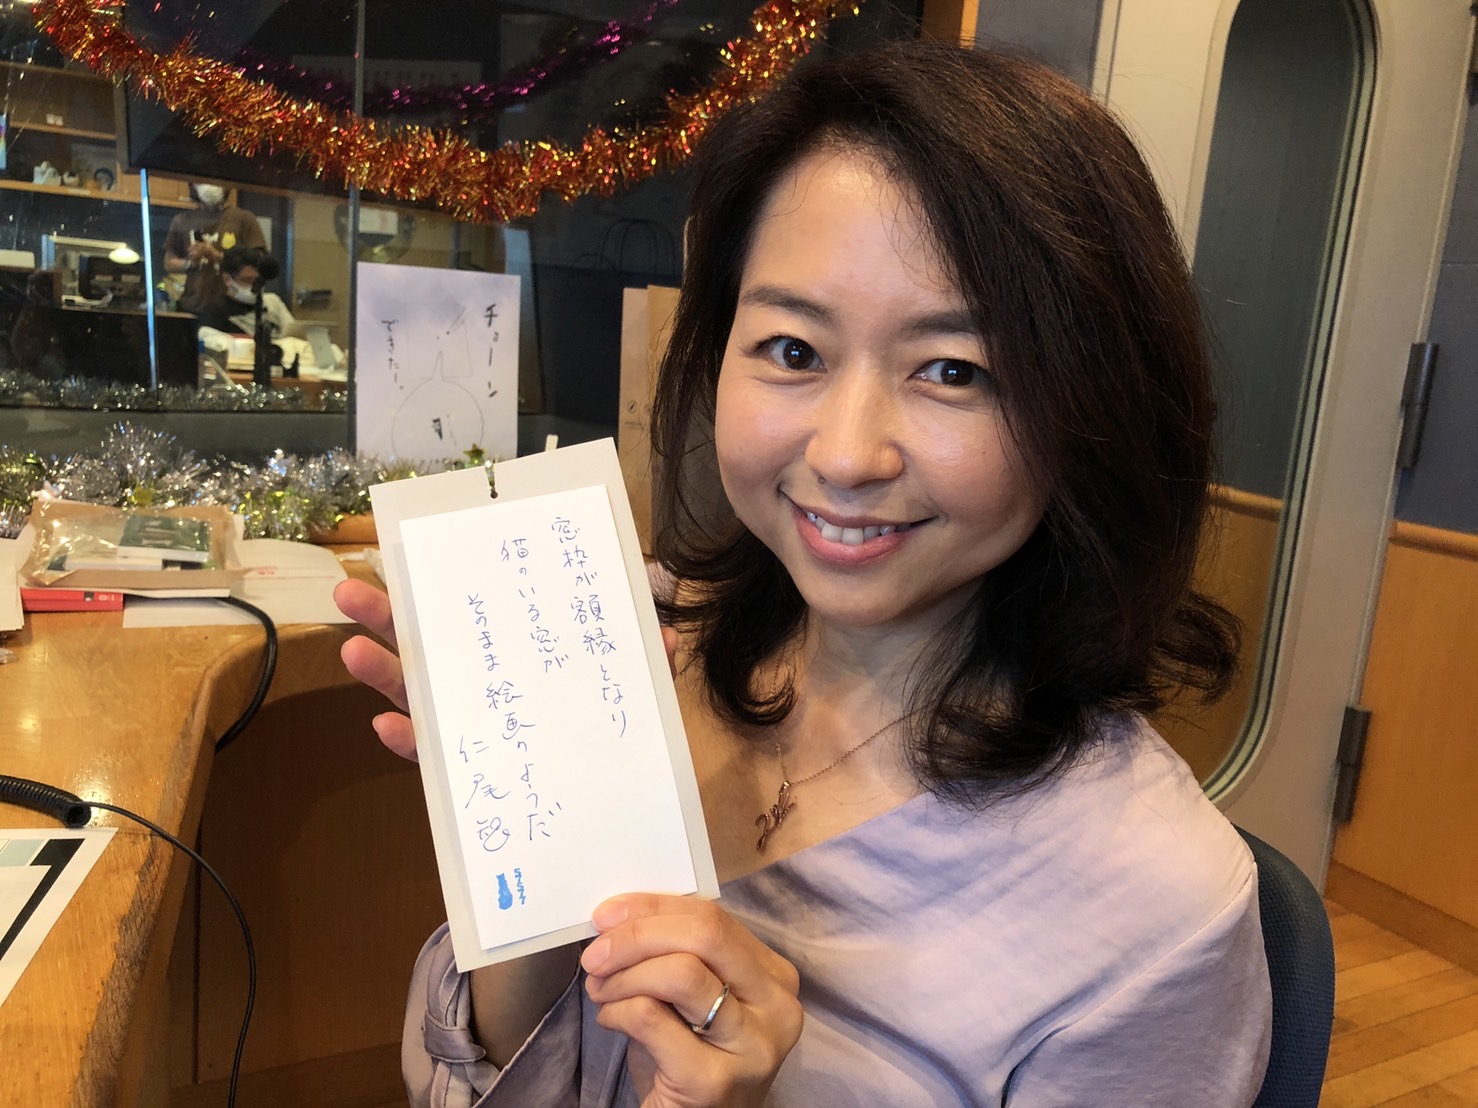 窓枠が額縁となり
猫のいる窓が
そのまま絵画のようだ
仁尾智
チョーン
できたー。